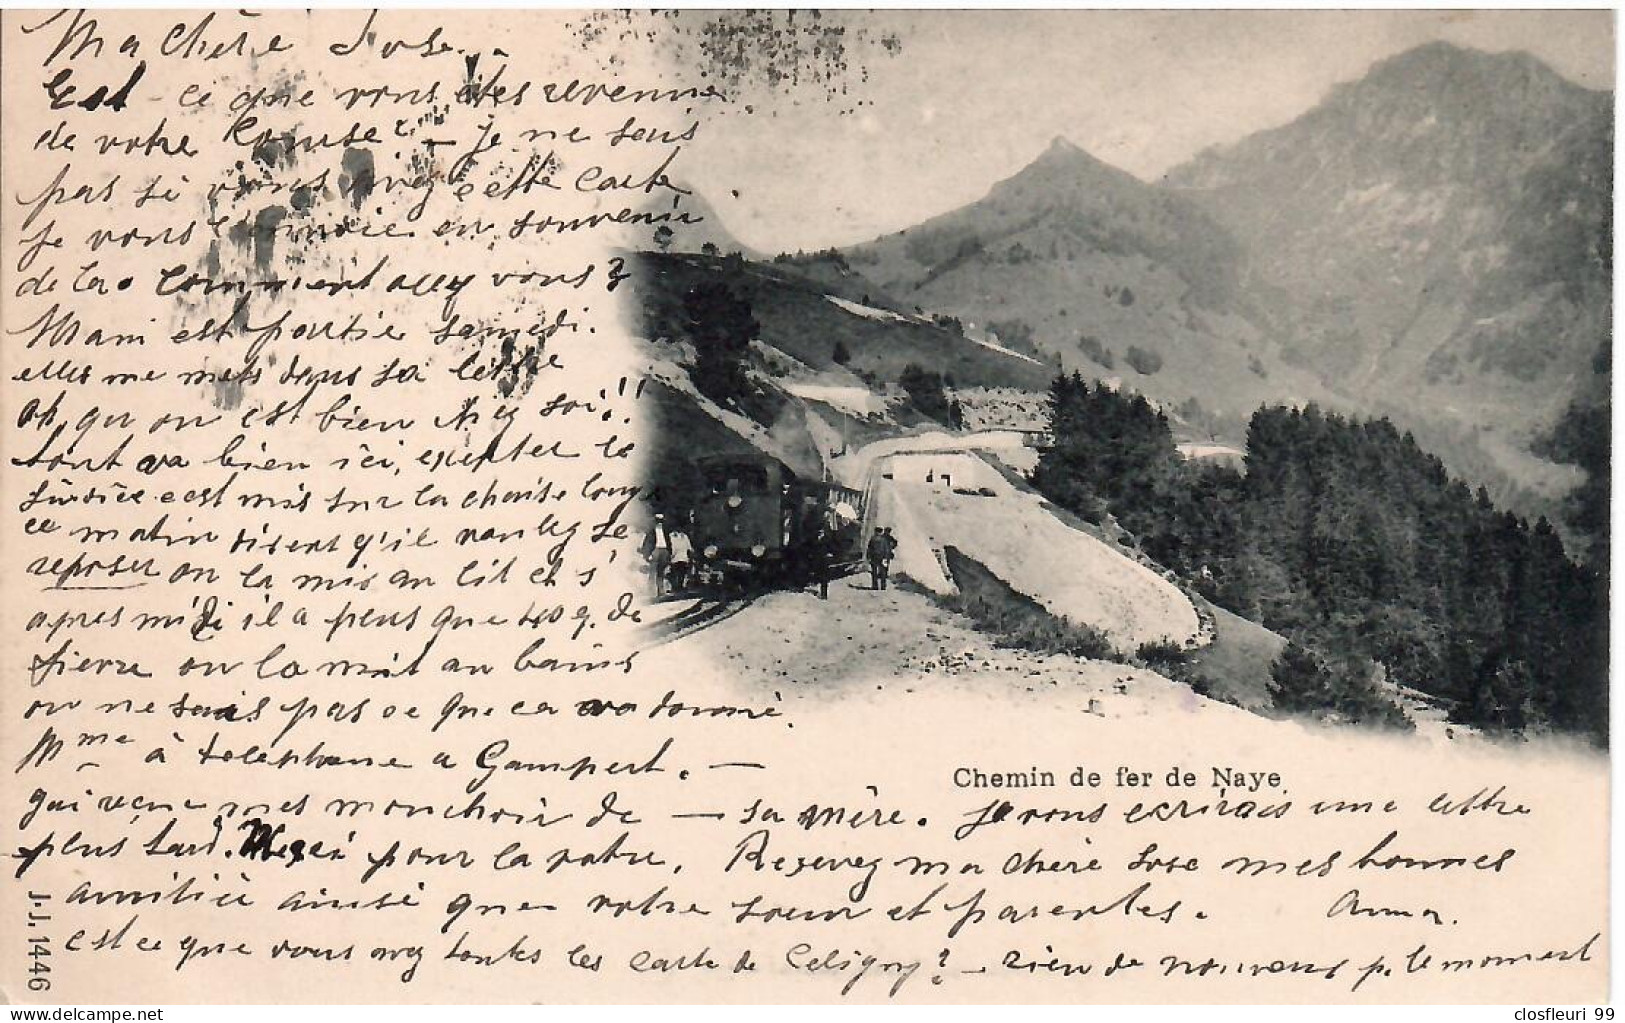 Ma Chère Jose.
Est-ce que vous êtes revenue
de votre Course — je ne sais
pas si vous avez cette Carte
je vous l'envoie en souvenir
de la. Comment allez vous?
Mani est partie samedi.
elles me mets dans sa lettre
Ah, qu on est bien chez soi!!
tout va bien ici, excepter le
c est mis sur la chaise longue
ce matin disent q'il voulez se
reposer on la mis au lit et s'
apres midi il a plus que 40 g. de
fierre on la mit au bains
on ne sais pas ce que ca va donné.
Mme à telephone a Gampert. —
qui vene mes mouchoir de — sa mère. je vous ecrirais une lettre
plus tard. Merci pour la votre. Reçevez ma chère Jose mes bonnes
amitiée ainsi que votre soeur et parentes. Anna.
est ce que vous avez toutes les carte de Celigny? — rien de nouveaus p. le moment
Chemin de fer de Naye
J.J. 1446
www.delcampe.net
closfleuri 99